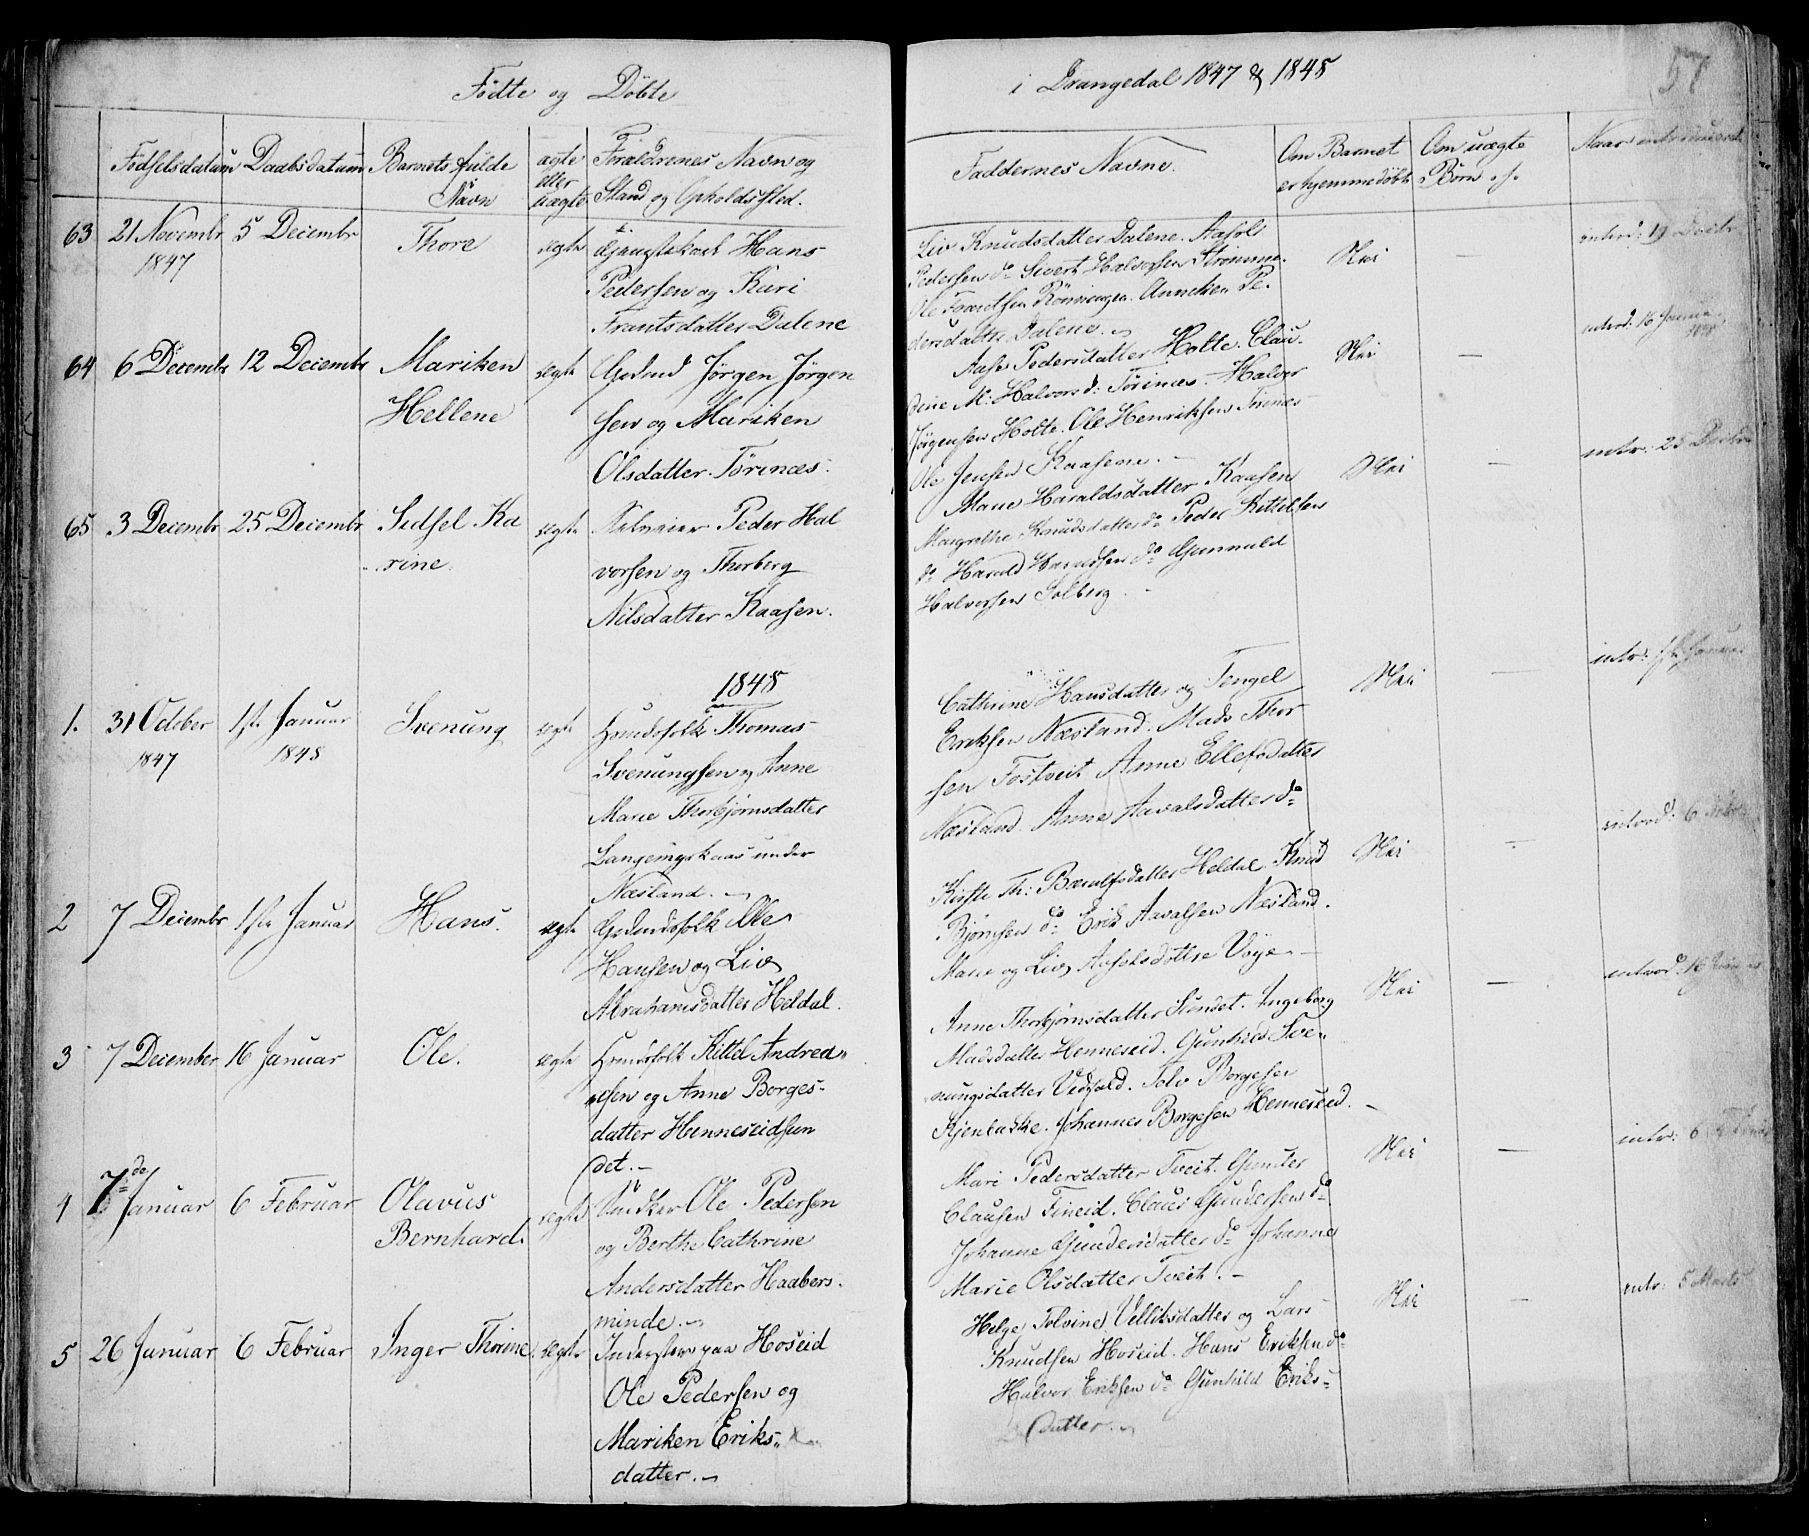 Fødte og Døbte
i Drangedal 1847 & 1848
57
Fødselsdatum
Daabsdatum
Barnets fulde
Navn
ægte
eller
uægte
Forældrenes Navn og
Stand og Opholdssted.
Faddernes Navne.
Om Barnet
er hjemmedøbt
Om uægte
Børn
Naar introduceret
63
21 Novembr
1847
5 Decembr
Thore
ægte
Hans
Pedersen og Kari
Frantsdatter Dalene
Liv Knudsdatter Dalene. Aasold
Pedersen do Sivert Halvorsen Strømme.
Ole Frantsen Rönningen. Anneken Pe-
dersdatter Dalene.
Nei
—
introd: 19 Decbr
64
6 Decembr
12 Decembr
Mariken
Hellene
ægte
Gdmd Jørgen Jørgen
sen og Mariken
Olsdatter Törinæs.
Aase Pedersdatter Holte. Clau-
dine M: Halvorsd: Törinæs. Halvor
Jørgensen Holte. Ole Henriksen Törinæs
Ole Jensen Kaasene.
Nei
—
introd: 16 Janua
1848
65
3 Decembr
25 Decembr
Sidsel Ka
rine.
ægte
Selveier Peder Hal
vorsen og Thorberg
Nilsdatter Kaasen.
Mane Haraldsdatter Kaasen
Margrethe Knudsdatter do Peder Kittelsen
do Harald Haraldsen do Gunnuld
Halvorsen Solberg.
Nei
—
intr: 25 Decbr
1848
1.
31 October
1847
1ste Januar
1848
Svenung
ægte
Huusfolk Thomas
Svenungsen og Anne
Marie Thorbjørnsdatter
Langemyrkaas under
Næsland.
Cathrine Hansdatter og Tengel
Eriksen Næsland. Mads Thor-
sen Tostveit Anne Ellefsdatter
Næsland. Anne Aavalsdatter do
Nei
—
intr: 1ste Januar
2
7 Decembr
1ste Januar
Hans.
ægte
Gdmdsfolk Ole
Hansen og Liv
Abrahamsdatter Heldal.
Kirste Th: Bærulfsdatter Heldal Knud
Bjørnsen do Erik Aavalsen Næsland.
Marie og Liv Aasolsdøttre Voje
Nei
introd: 6
3
7 December
16 Januar
Ole.
ægte
Huusfolk Kittel Andrea-
sen og Anne Borges-
datter Henneseidsun
det.
Anne Thorbjørnsdatter Sundet. Ingeborg
Madsdatter Henneseid. Gunhild Sve-
nungsdatter Vedfald. Solv Borgesen
Kjenbakke. Johannes Borgesen Henneseid.
Nei
—
introd: 16 Januar
4
7de Januar
6 Februar
Olavus
Bernhard.
ægte
Ole Pedersen
og Berthe Cathrine
Andersdatter Haabers-
minde.
Mari Pedersdatter Tveit. Gunder
Clausen Fineid. Claus Gundersen do
Johanne Gundersdatter do Johanne
Marie Olsdatter Tveit.
Nei
—
intr: 6 Februar
5
26 Januar
6 Februar
Inger Thorine.
ægte
Inderster paa Hoseid
Ole Pedersen og
Mariken Eriks-
datter.
Helge Tolvine Velliksdatter og Lars
Knudsen Hoseid. Hans Eriksen do
Halvor Eriksen do Gunhild Eriks-
datter.
Nei
—
intr: 5 Marts